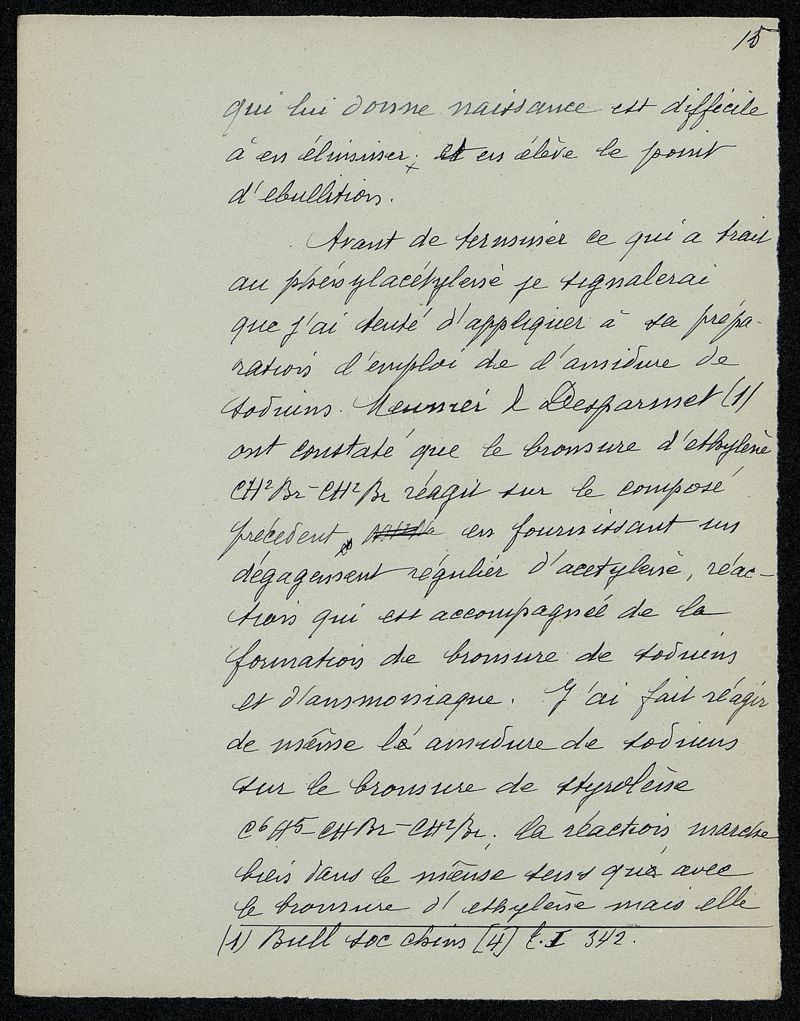 15
qui lui donne naissance est difficile
à en éliminer; et en élève le point
d'ebullition.
Avant de terminer ce qui a trait
au phénylacétylène je signalerai
que j'ai tenté d'appliquer à sa prépa-
ration l'emploi de l'amidure de
sodium. Meunier & Desparmet (1)
ont constaté que le bromure d'ethylène
CH²Br-CH²Br réagit sur le composé
précédent en fournissant un
dégagement régulier d'acetylène, réac-
tion qui est accompagnée de la
formation de bromure de sodium
et d'ammoniaque. J'ai fait réagir
de même le amidure de sodium
sur le bromure de styrolène
C⁶H⁵-CHBr-CH²Br; la réaction marche
bien dans le même sens que avec
le bromure d'ethylène mais elle
(1) Bull soc chim [4] t. I 342.